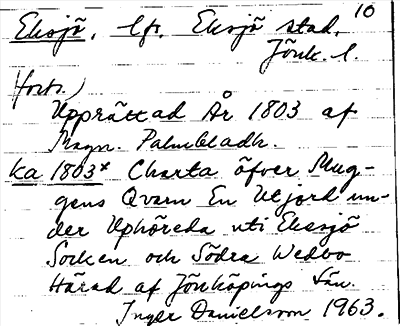 10
Eksjö, lfs. Eksjö stad,
Jönk. l.
(forts.)
Upprättad År 1803 af
Magn. Palmbladh.
ka 1803* Charta öfver Mug-
gens Qvarn En Utjord un-
der Uphöreda uti Eksjö
Socken och Södra Wedbo
Härad af Jönköpings Län.
Inger Danielsson 1963.